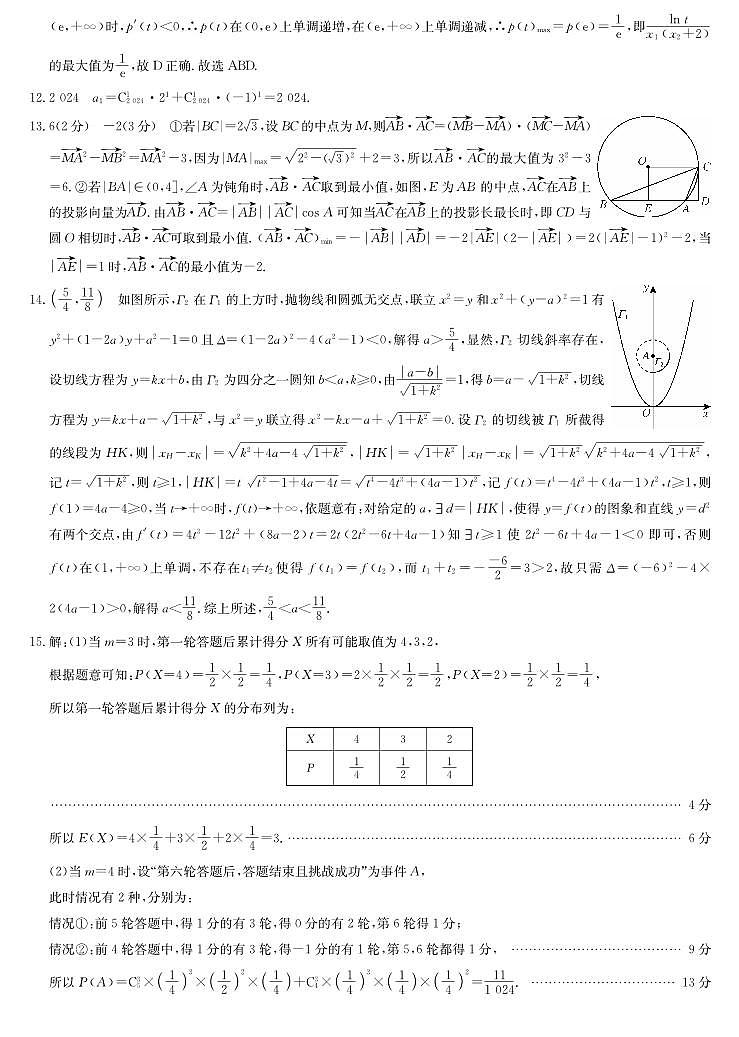 (e,+∞)时,p′(t)<0,∴p(t)在(0,e)上单调递增,在(e,+∞)上单调递减,∴p(t)max=p(e)=1/e,即ln t/x₁(x₂+2)
的最大值为1/e,故D正确.故选ABD.
12.2 024 a₁=C¹₂₀₂₄·2¹+C¹₂₀₂₄·(-1)¹=2 024.
13.6(2分) -2(3分) ①若|BC|=2√3,设BC的中点为M,则AB·AC=(MB-MA)·(MC-MA)
=MA²-MB²=MA²-3,因为|MA|max=√(2²-(√3)²)+2=3,所以AB·AC的最大值为3²-3
=6.②若|BA|∈(0,4],∠A为钝角时,AB·AC取到最小值,如图,E为AB的中点,AC在AB上
的投影向量为AD.由AB·AC=|AB||AC|cos A可知当AC在AB上的投影长最长时,即CD与
圆O相切时,AB·AC可取到最小值.(AB·AC)min=-|AB||AD|=-2|AE|(2-|AE|)=2(|AE|-1)²-2,当
|AE|=1时,AB·AC的最小值为-2.
O
C
B
E
A
D
14.(5/4,11/8) 如图所示,Γ₂在Γ₁的上方时,抛物线和圆弧无交点,联立x²=y和x²+(y-a)²=1有
y²+(1-2a)y+a²-1=0且Δ=(1-2a)²-4(a²-1)<0,解得a>5/4,显然,Γ₂切线斜率存在,
设切线方程为y=kx+b,由Γ₂为四分之一圆知b<a,k≥0,由|a-b|/√(1+k²)=1,得b=a-√(1+k²),切线
方程为y=kx+a-√(1+k²),与x²=y联立得x²-kx-a+√(1+k²)=0.设Γ₂的切线被Γ₁所截得
的线段为HK,则|x_H-x_K|=√(k²+4a-4√(1+k²)),|HK|=√(1+k²)|x_H-x_K|=√(1+k²)√(k²+4a-4√(1+k²)),
记t=√(1+k²),则t≥1,|HK|=t√(t²-1+4a-4t)=√(t⁴-4t³+(4a-1)t²),记f(t)=t⁴-4t³+(4a-1)t²,t≥1,则
f(1)=4a-4≥0,当t→+∞时,f(t)→+∞,依题意有:对给定的a,∃d=|HK|,使得y=f(t)的图象和直线y=d²
有两个交点,由f′(t)=4t³-12t²+(8a-2)t=2t(2t²-6t+4a-1)知∃t≥1使2t²-6t+4a-1<0即可,否则
f(t)在(1,+∞)上单调,不存在t₁≠t₂使得f(t₁)=f(t₂),而t₁+t₂=-(-6)/2=3>2,故只需Δ=(-6)²-4×
2(4a-1)>0,解得a<11/8.综上所述,5/4<a<11/8.
y
Γ₁
A
Γ₂
O
x
15.解:(1)当m=3时,第一轮答题后累计得分X所有可能取值为4,3,2,
根据题意可知:P(X=4)=1/2×1/2=1/4,P(X=3)=2×1/2×1/2=1/2,P(X=2)=1/2×1/2=1/4,
所以第一轮答题后累计得分X的分布列为:
X 4 3 2
P 1/4 1/2 1/4
……………………………………………………………… 4分
所以E(X)=4×1/4+3×1/2+2×1/4=3. ……………………………………… 6分
(2)当m=4时,设“第六轮答题后,答题结束且挑战成功”为事件A,
此时情况有2种,分别为:
情况①:前5轮答题中,得1分的有3轮,得0分的有2轮,第6轮得1分;
情况②:前4轮答题中,得1分的有3轮,得-1分的有1轮,第5,6轮都得1分, ………………… 9分
所以P(A)=C³₅×(1/4)³×(1/2)²×(1/4)+C³₄×(1/4)³×(1/4)×(1/4)²=11/1 024. ……………… 13分